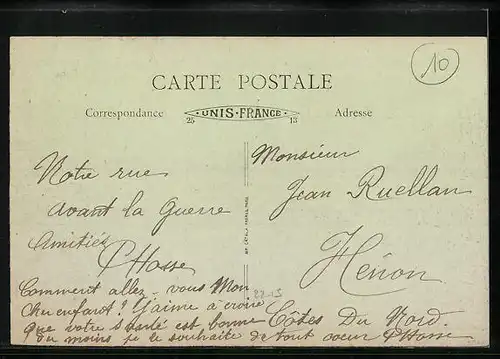 10
CARTE POSTALE
Correspondance
UNIS-FRANCE
25 13
Adresse
Notre rue
avant la Guerre
Amitiés
PHasse
Monsieur
Jean Ruellan
Hénon
Côtes Du Nord.
Comment allez-vous Mon
cher enfant? J'aime à croire
que votre santé est bonne
du moins je le souhaite de tout coeur PHasse